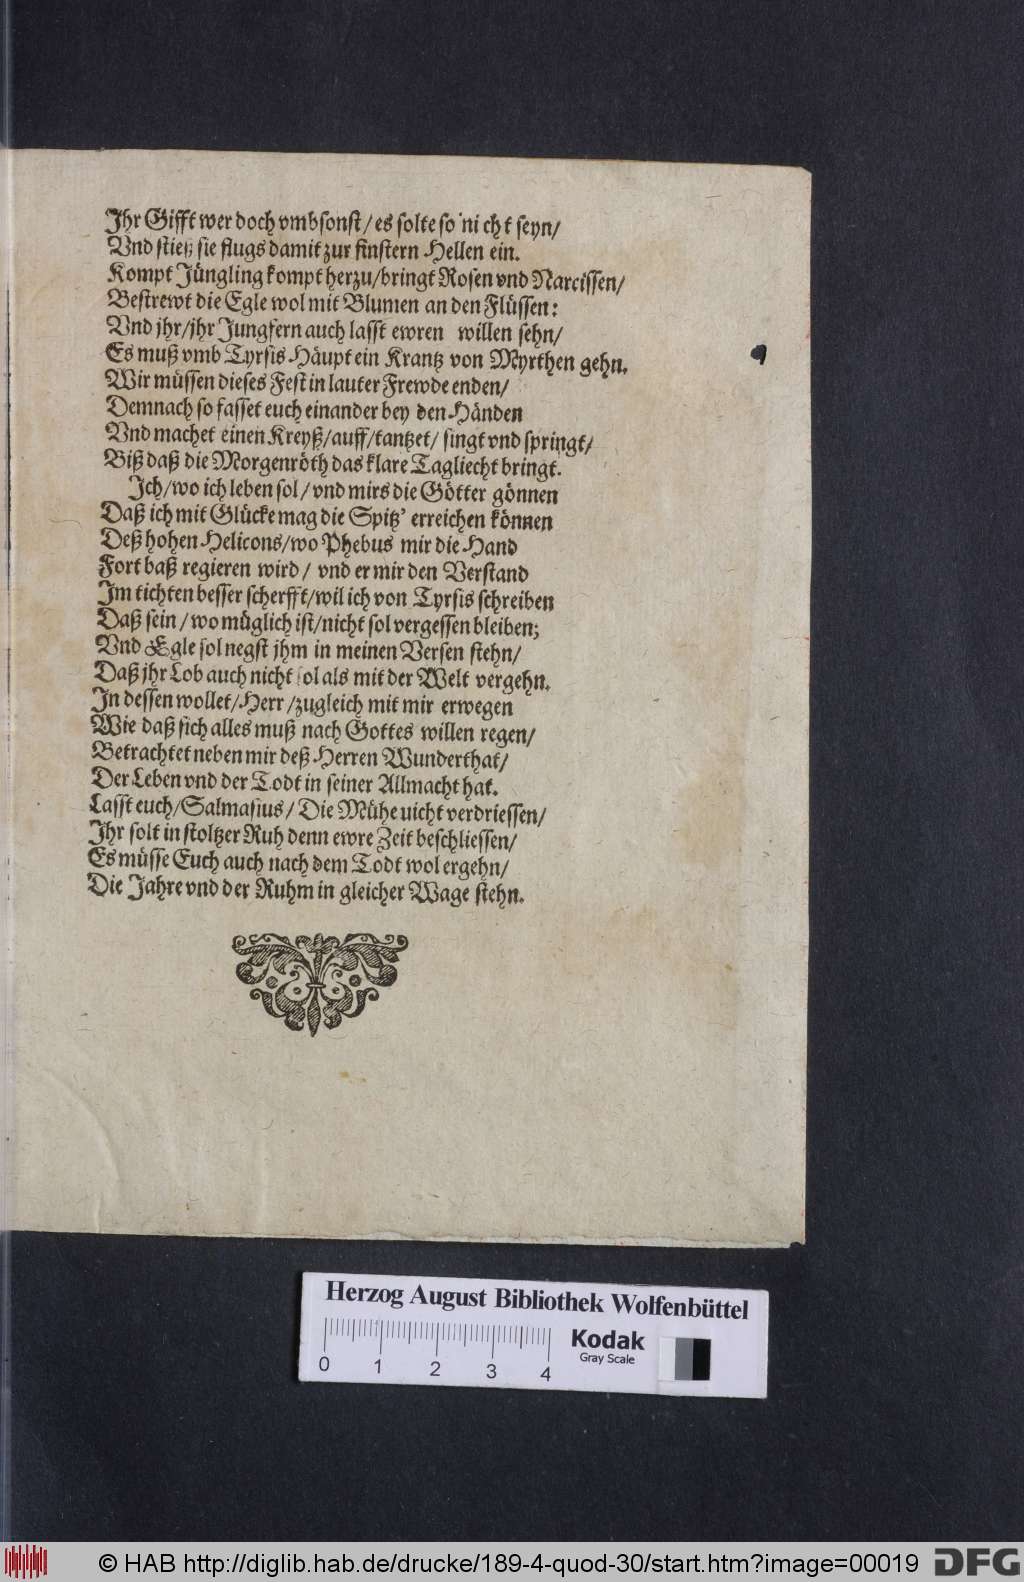 Ihr Gifft wer doch vmbsonst/ es solte so ni cht seyn/
Vnd stieß sie flugs damit zur finstern Hellen ein.
Kompt Jüngling kompt herzu/bringt Rosen vnd Narcissen/
Bestrewt die Egle wol mit Blumen an den Flüssen:
Vnd jhr/jhr Jungfern auch lasst ewren willen sehn/
Es muß vmb Tyrsis Häupt ein Krantz von Myrthen gehn.
Wir müssen dieses Fest in lauter Frewde enden/
Demnach so fasset euch einander bey den Händen
Vnd machet einen Kreyß/auff/tantzet/ singt vnd springt/
Biß daß die Morgenröth das klare Tagliecht bringt.
Ich/wo ich leben sol/ vnd mirs die Götter gönnen
Daß ich mit Glücke mag die Spitz' erreichen können
Deß hohen Helicons/wo Phebus mir die Hand
Fort baß regieren wird/ vnd er mir den Verstand
Im tichten besser scherfft/wil ich von Tyrsis schreiben
Daß sein/ wo müglich ist/nicht sol vergessen bleiben;
Vnd Egle sol negst jhm in meinen Versen stehn/
Daß jhr Lob auch nicht sol als mit der Welt vergehn.
In dessen wollet/Herr/zugleich mit mir erwegen
Wie daß sich alles muß nach Gottes willen regen/
Betrachtet neben mir deß Herren Wunderthat/
Der Leben vnd der Todt in seiner Allmacht hat.
Lasst euch/Salmasius/ Die Mühe uicht verdriessen/
Ihr solt in stoltzer Ruh denn ewre Zeit beschliessen/
Es müsse Euch auch nach dem Todt wol ergehn/
Die Jahre vnd der Ruhm in gleicher Wage stehn.
Herzog August Bibliothek Wolfenbüttel
Kodak
Gray Scale
0 1 2 3 4
© HAB http://diglib.hab.de/drucke/189-4-quod-30/start.htm?image=00019
DFG